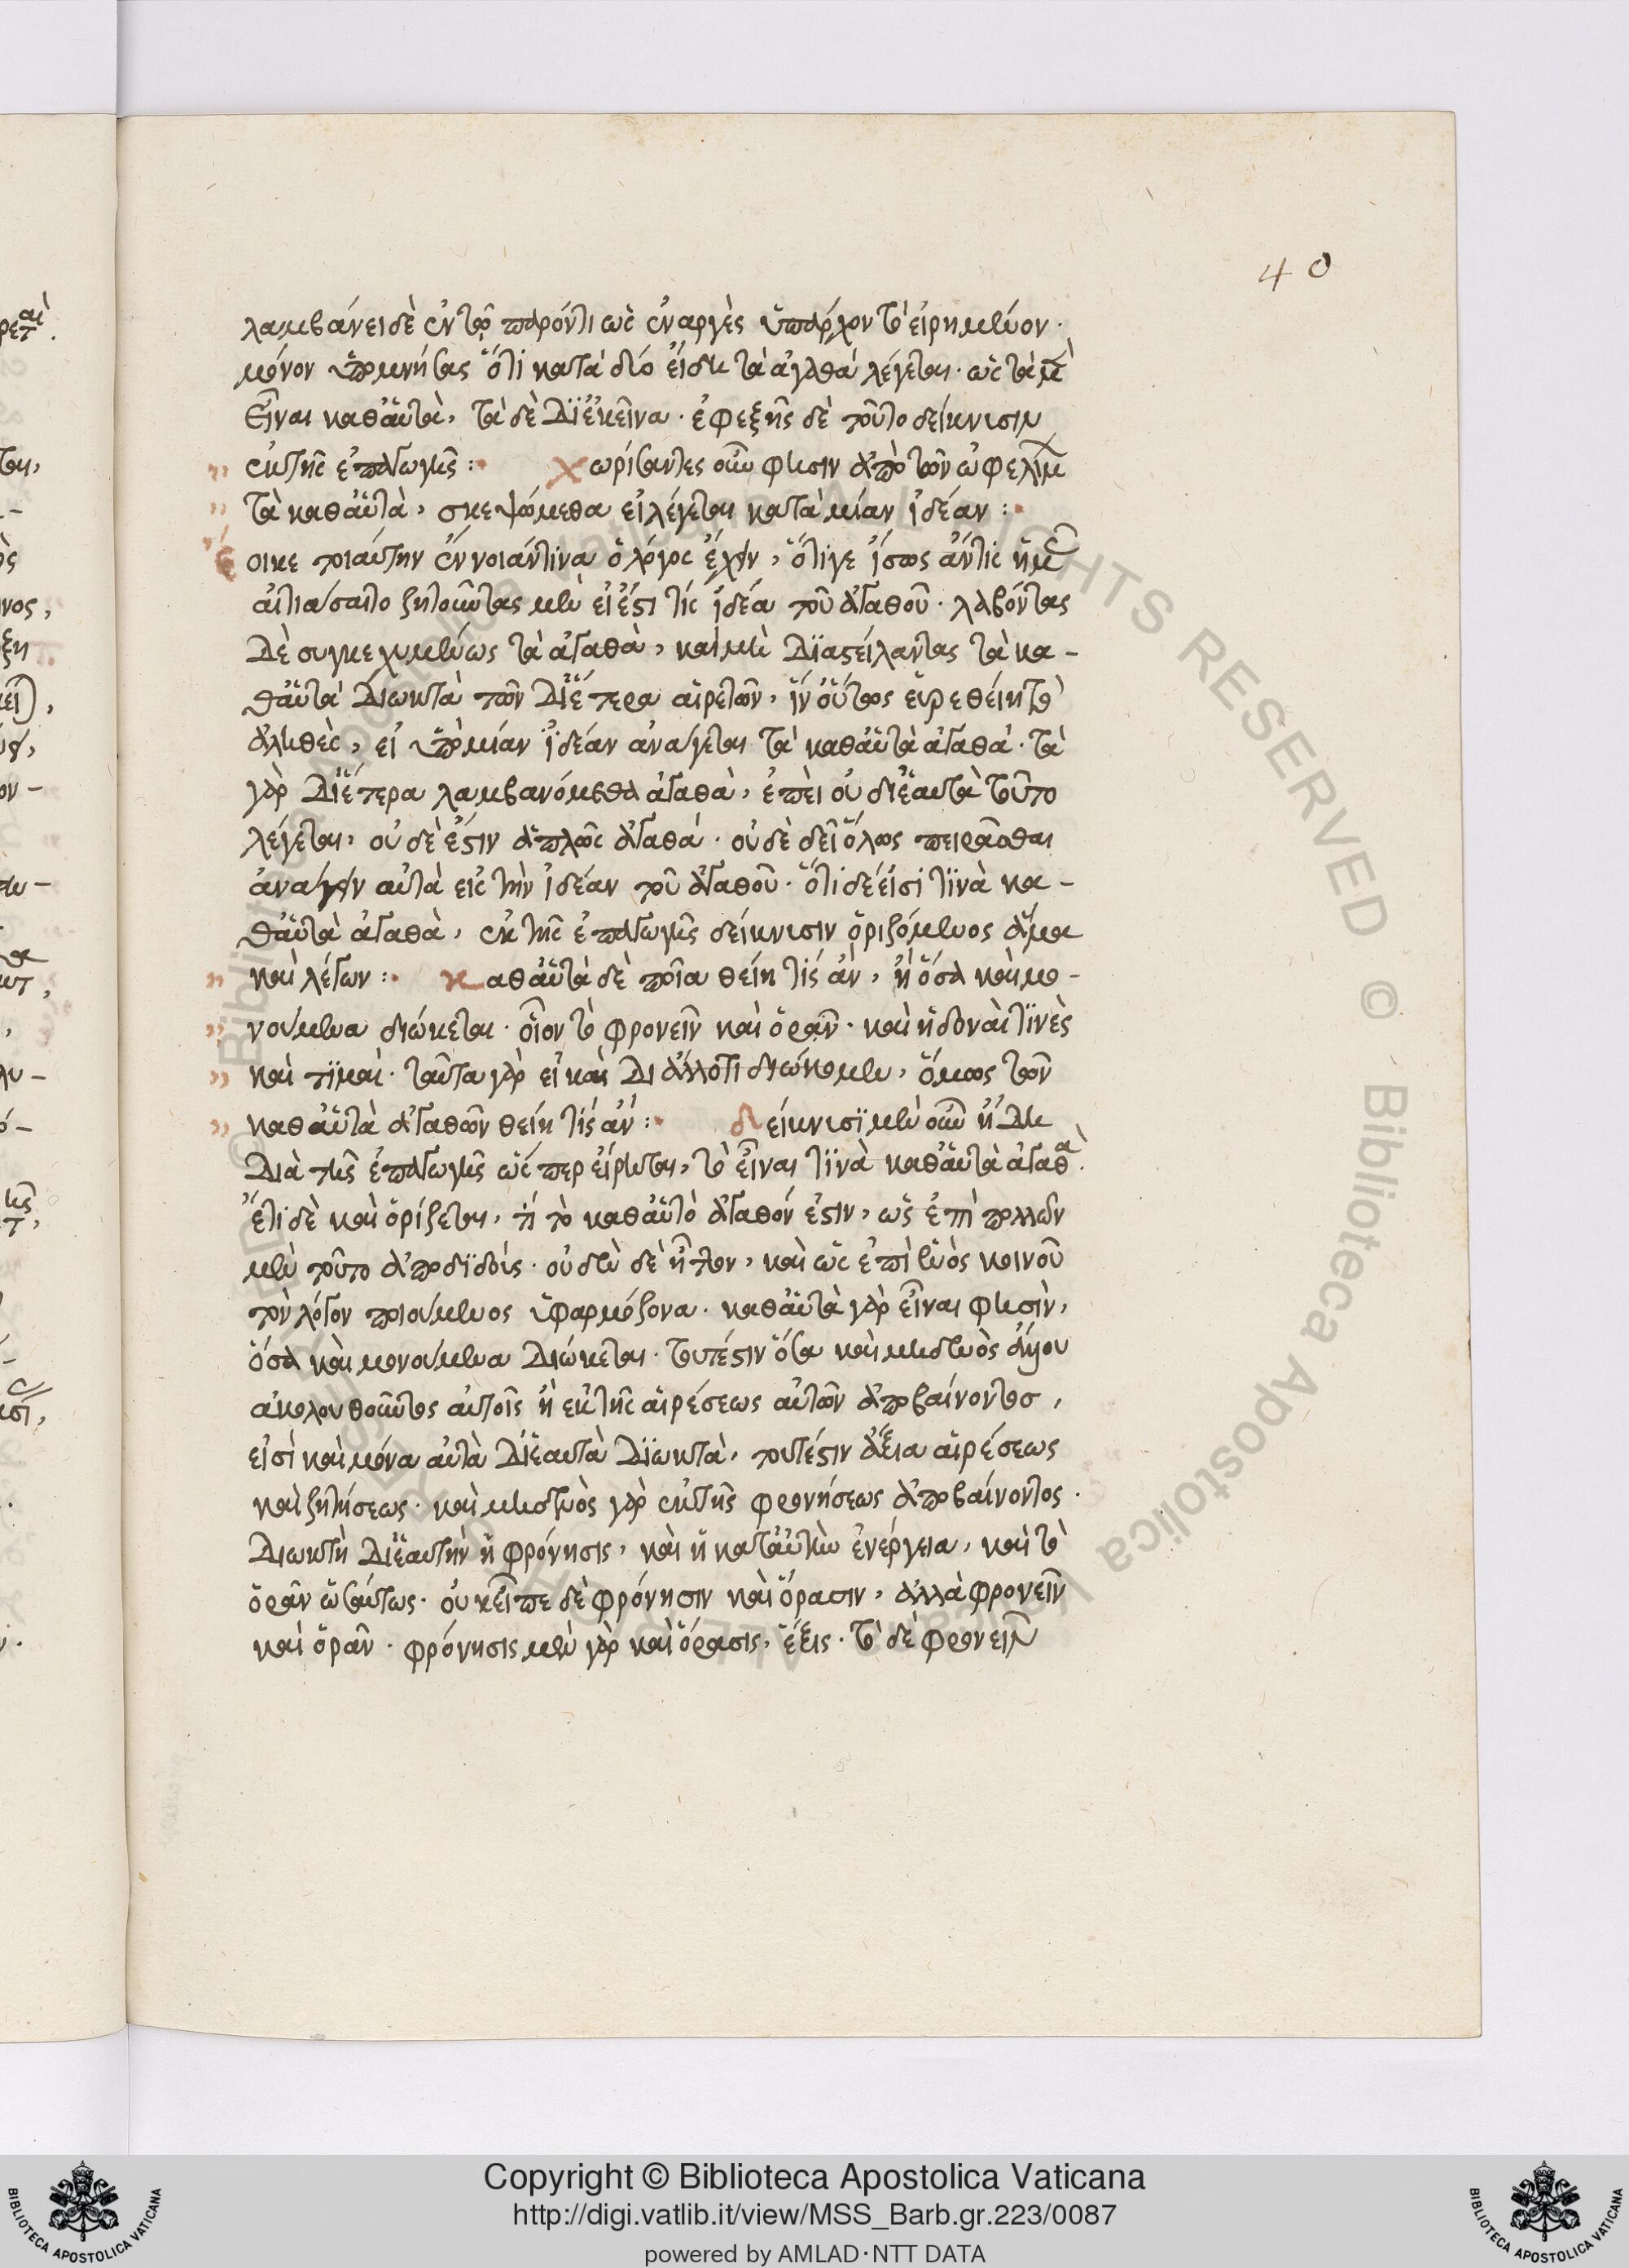 40
λαμβάνει δὲ ἐν τῷ παρόντι ὡς ἐναργὲς ὑπάρχον τὸ εἰρημένον·
μόνον ὑπομνήσας ὅτι κατὰ δύο εἴδη τὰ ἀγαθὰ λέγεται· ὡς τὰ μὲν
εἶναι καθ' αὑτὰ, τὰ δὲ δι' ἐκεῖνα· ἐφεξῆς δὲ τοῦτο δείκνυσιν
" ἐκ τῆς ἐπαγωγῆς :· χωρίσαντες οὖν φησιν ἀπὸ τῶν ὠφελίμων
" τὰ καθ' αὑτὰ, σκεψώμεθα εἰ λέγεται κατὰ μίαν ἰδέαν :·
ἔοικε τοιαύτην ἔννοιάν τινα ὁ λόγος ἔχειν, ὅτι γε ἴσως ἄν τις ἡμᾶς
αἰτιάσαιτο ζητοῦντας μὲν εἰ ἔστι τίς ἰδέα τοῦ ἀγαθοῦ· λαβόντας
δὲ συγκεχυμένως τὰ ἀγαθὰ, καὶ μὴ διαστείλαντας τὰ κα-
θ' αὑτὰ διωκτὰ τῶν δι' ἕτερα αἱρετῶν, ἵν' οὕτως εὑρεθείη τὸ
ἀληθὲς, εἰ ὑπὸ μίαν ἰδέαν ἀνάγεται τὰ καθ' αὑτὰ ἀγαθά· τὰ
γὰρ δι' ἕτερα λαμβανόμεθα ἀγαθὰ, ἐπεὶ οὐ δι' ἑαυτὰ τοῦτο
λέγεται, οὐδὲ ἔστιν ἁπλῶς ἀγαθά· οὐδὲ δεῖ ὅλως πειρᾶσθαι
ἀνάγειν αὐτὰ εἰς τὴν ἰδέαν τοῦ ἀγαθοῦ· ὅτι δέ εἰσί τινὰ κα-
θ' αὑτὰ ἀγαθὰ, ἐκ τῆς ἐπαγωγῆς δείκνυσιν ὁριζόμενος ἅμα
" καὶ λέγων :· καθ' αὑτὰ δὲ ποῖα θείη τίς ἂν, ἢ ὅσα καὶ μο-
" νούμενα διώκεται· οἷον τὸ φρονεῖν καὶ ὁρᾶν· καὶ ἡδοναὶ τινὲς
" καὶ τιμαί· ταῦτα γὰρ εἰ καὶ δι' ἄλλο τι διώκομεν, ὅμως τῶν
" καθ' αὑτὰ ἀγαθῶν θείη τίς ἄν :· δείκνυσι μὲν οὖν ἤδη
διὰ τῆς ἐπαγωγῆς ὥσπερ εἴρηται, τὸ εἶναι τινὰ καθ' αὑτὰ ἀγαθά.
ἔτι δὲ καὶ ὁρίζεται, τί τὸ καθ' αὑτὸ ἀγαθόν ἐστιν, ὡς ἐπὶ πολλῶν
μὲν τοῦτο ἀποδιδούς· οὐδὲν δὲ ἧττον, καὶ ὡς ἐπὶ ἑνὸς κοινοῦ
τὸν λόγον ποιούμενος ἐφαρμόζοντα· καθ' αὑτὰ γὰρ εἶναι φησὶν,
ὅσα καὶ μονούμενα διώκεται· τουτέστιν ὅσα καὶ μηδενὸς ἄλλου
ἀκολουθοῦντος αὐτοῖς ἢ ἐκ τῆς αἱρέσεως αὐτῶν ἀποβαίνοντος,
εἰσὶ καὶ μόνα αὐτὰ δι' ἑαυτὰ διωκτὰ, τουτέστιν ἄξια αἱρέσεως
καὶ ζητήσεως· καὶ μηδενὸς γὰρ ἐκ τῆς φρονήσεως ἀποβαίνοντος·
διωκτὴ δι' ἑαυτὴν ἡ φρόνησις, καὶ ἡ κατ' αὐτὴν ἐνέργεια, καὶ τὸ
ὁρᾶν ὡσαύτως· οὐκ εἶπε δὲ φρόνησιν καὶ ὅρασιν, ἀλλὰ φρονεῖν
καὶ ὁρᾶν· φρόνησις μὲν γὰρ καὶ ὅρασις, ἕξις· τὸ δὲ φρονεῖν
Copyright © Biblioteca Apostolica Vaticana
http://digi.vatlib.it/view/MSS_Barb.gr.223/0087
powered by AMLAD·NTT DATA